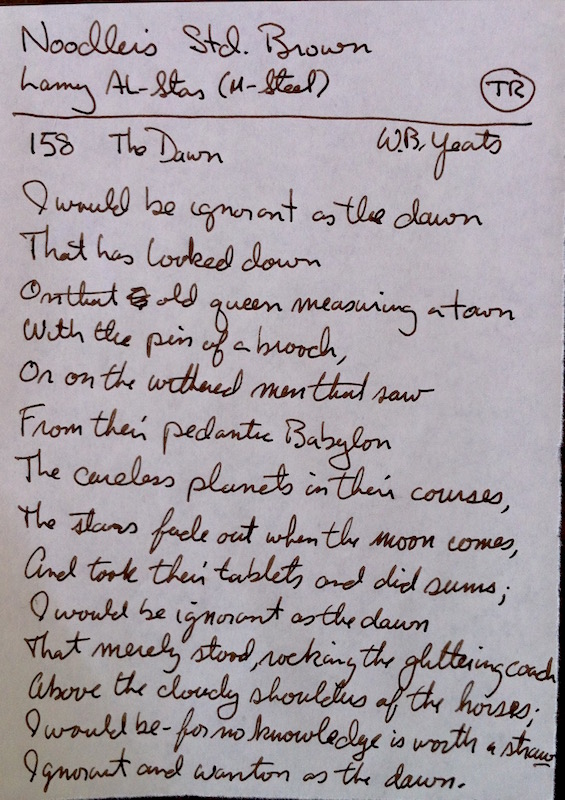 Noodler's Std. Brown
Lamy AL-Star (M-Steel)
TR
158 The Dawn W.B. Yeats
I would be ignorant as the dawn
That has looked down
On that old queen measuring a town
With the pin of a brooch,
Or on the withered men that saw
From their pedantic Babylon
The careless planets in their courses,
The stars fade out when the moon comes,
And took their tablets and did sums;
I would be ignorant as the dawn
That merely stood, rocking the glittering coach
Above the cloudy shoulders of the horses;
I would be - for no knowledge is worth a straw
Ignorant and wanton as the dawn.